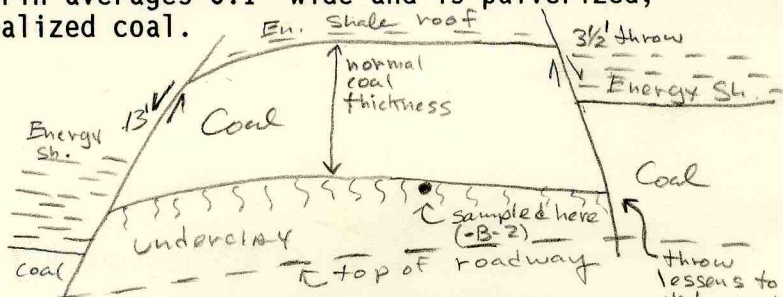 averages 0.1' wide and is pulverized,
alized coal.
En. Shale roof
3½' throw
Energy Sh.
normal
coal
thickness
13'
Coal
Energy
Sh.
Coal
sampled here
(-B-2)
underclay
top of roadway
Coal
throw
lessens to